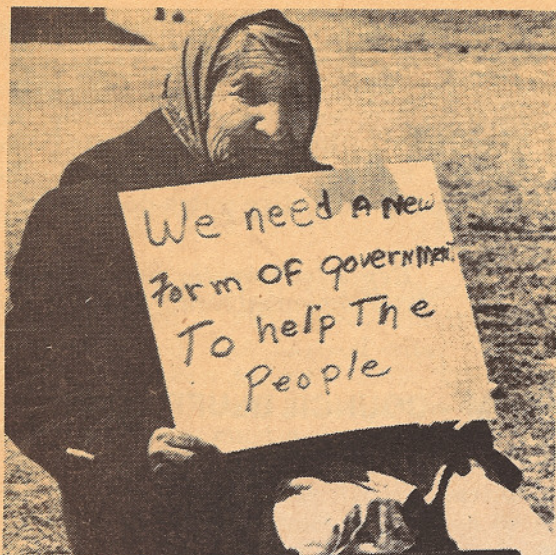 We need A New
Form OF governMent
To help The
People